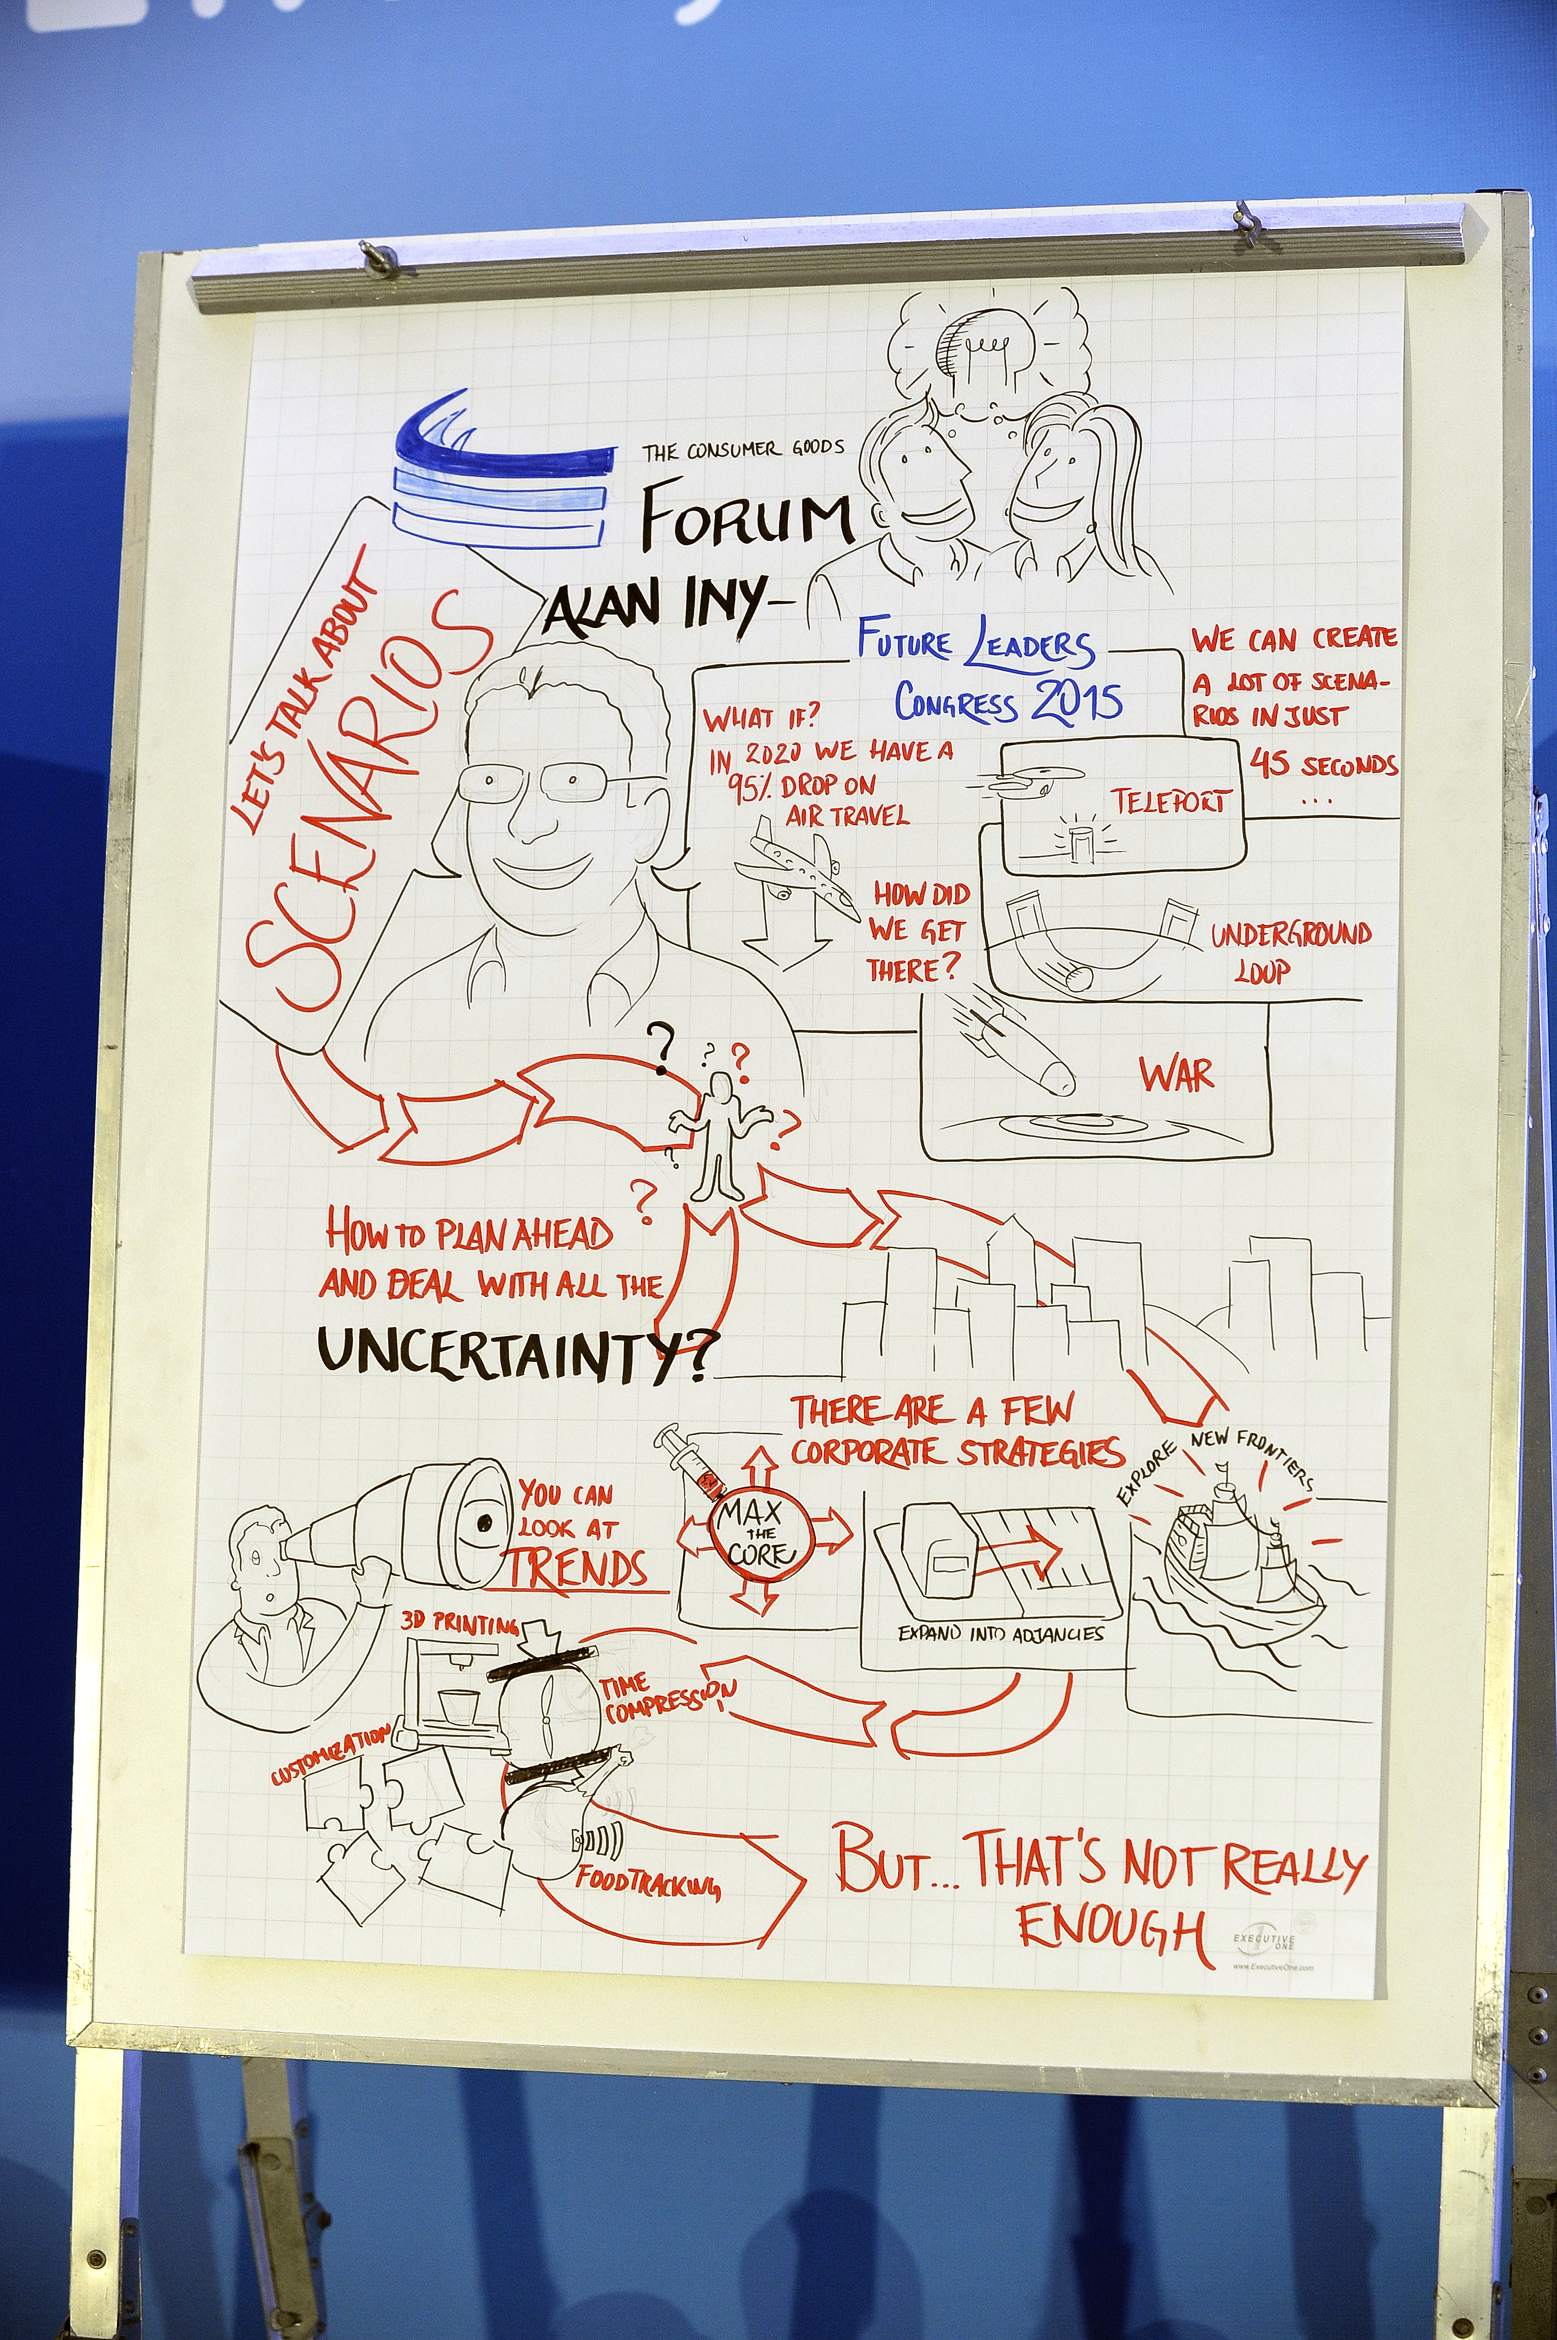 THE CONSUMER GOODS
FORUM
ALAN INY-
LET'S TALK ABOUT
SCENARIOS
FUTURE LEADERS
CONGRESS 2015
WHAT IF?
IN 2020 WE HAVE A
95% DROP ON
AIR TRAVEL
WE CAN CREATE
A LOT OF SCENA-
RIOS IN JUST
45 SECONDS
...
HOW DID
WE GET
THERE?
TELEPORT
UNDERGROUND
LOOP
WAR
? ? ?
?
?
?
HOW TO PLAN AHEAD
AND DEAL WITH ALL THE
UNCERTAINTY?
THERE ARE A FEW
CORPORATE STRATEGIES
MAX
THE
CORE
EXPAND INTO ADJANCIES
EXPLORE NEW FRONTIERS
YOU CAN
LOOK AT
TRENDS
3D PRINTING
TIME
COMPRESSION
CUSTOMIZATION
FOODTRACKING
BUT... THAT'S NOT REALLY
ENOUGH
EXECUTIVE
ONE
www.ExecutiveOne.com